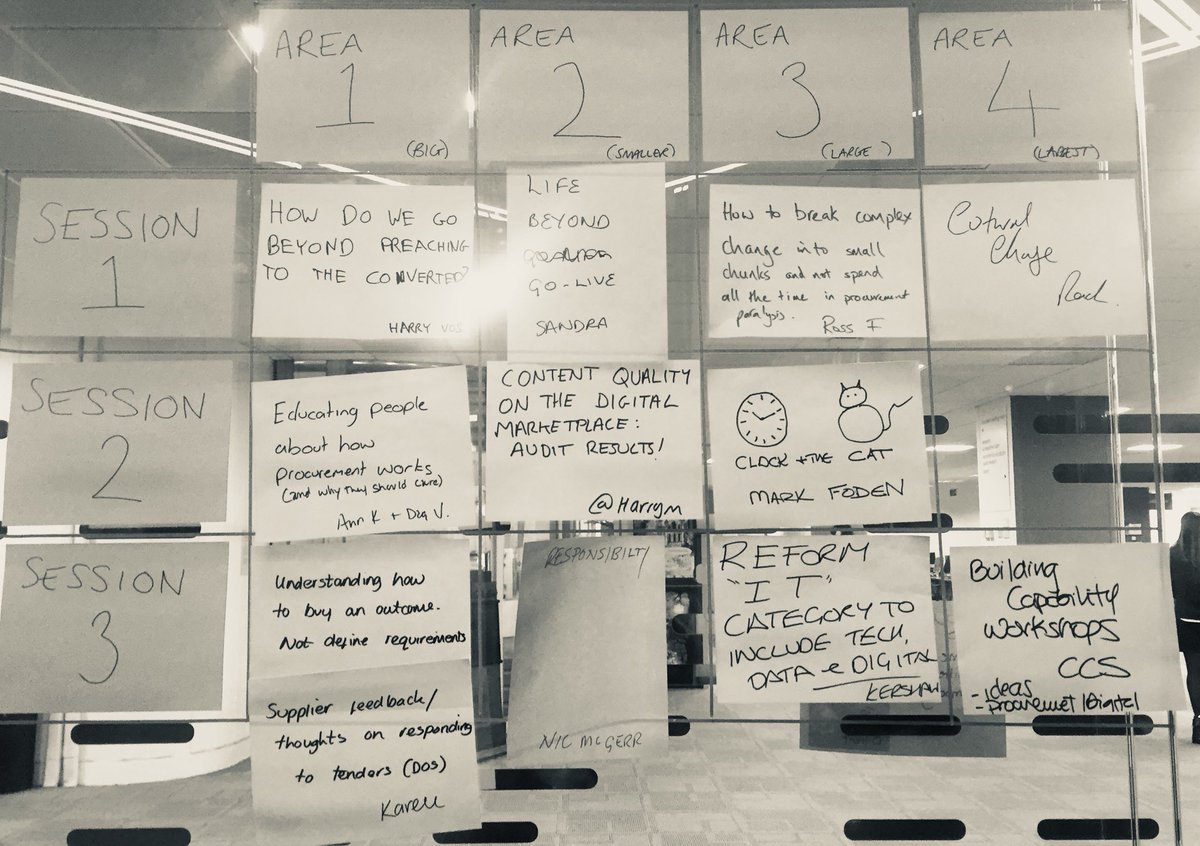 AREA
1
(BIG)
AREA
2
(SMALLER)
AREA
3
(LARGE)
AREA
4
(LARGEST)
SESSION
1
HOW DO WE GO
BEYOND PREACHING
TO THE CONVERTED?
HARRY VOS
LIFE
BEYOND
GO-LIVE
SANDRA
How to break complex
change into small
chunks and not spend
all the time in procurement
paralysis.
Ross F
Cultural
Change
SESSION
2
Educating people
about how
procurement works
(and why they should care)
Ann K + V.
CONTENT QUALITY
ON THE DIGITAL
MARKETPLACE:
AUDIT RESULTS!
@Harrym
CLOCK + THE CAT
MARK FODEN
SESSION
3
Understanding how
to buy an outcome.
Not define requirements
Supplier feedback/
thoughts on responding
to tenders (DOS)
Karen
RESPONSIBILTY
NIC MCGERR
REFORM
"IT"
CATEGORY TO
INCLUDE TECH,
DATA e DIGITAL
KERSHAW
Building
Capability
Workshops
CCS
- ideas
- procuremet/Digital